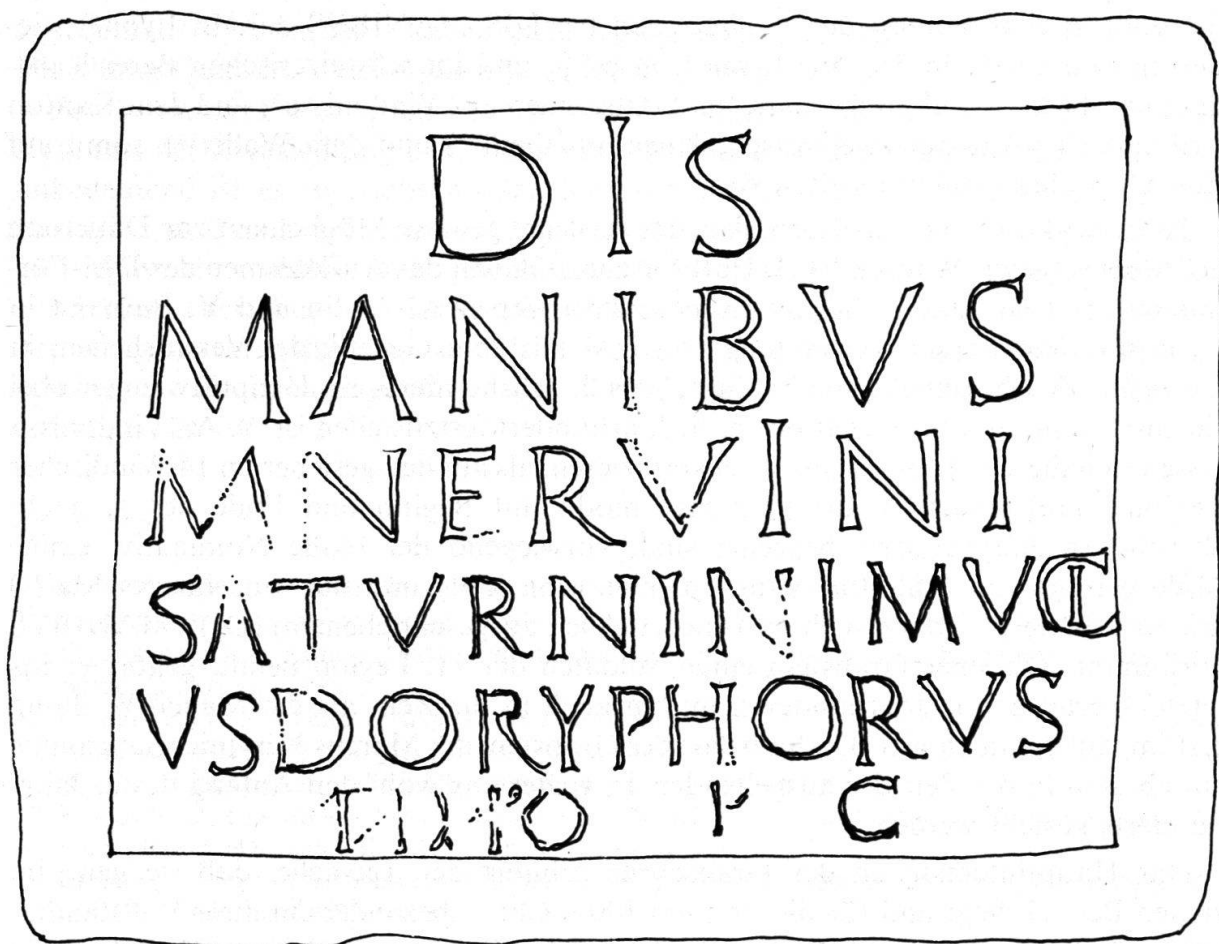 DIS
MANIBVS
M NERVINI
SATVRNINI MVCI
VS DORYPHORVS
P C